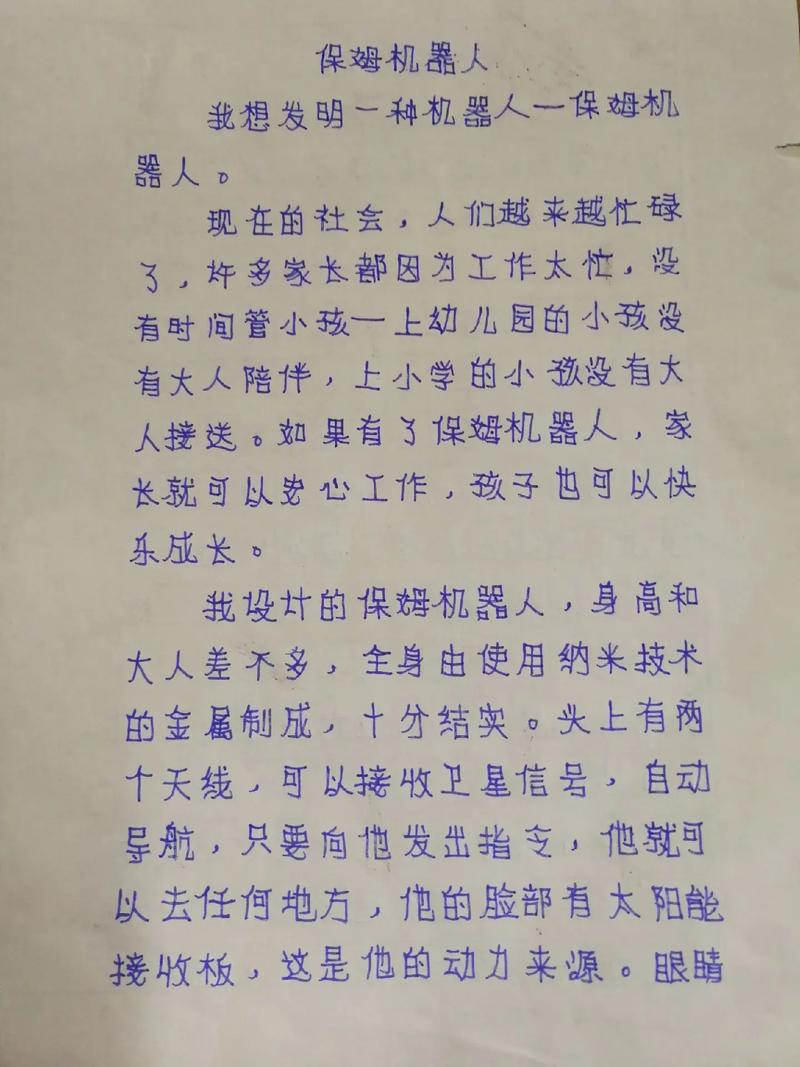 保姆机器人
我想发明一种机器人一保姆机
器人。
现在的社会，人们越来越忙碌
了，许多家长都因为工作太忙，没
有时间管小孩一上幼儿园的小孩没
有大人陪伴，上小学的小孩没有大
人接送。如果有了保姆机器人，家
长就可以安心工作，孩子也可以快
乐成长。
我设计的保姆机器人，身高和
大人差不多，全身由使用纳米技术
的金属制成，十分结实。头上有两
个天线，可以接收卫星信号，自动
导航，只要向他发出指令，他就可
以去任何地方，他的脸部有太阳能
接收板，这是他的动力来源。眼睛